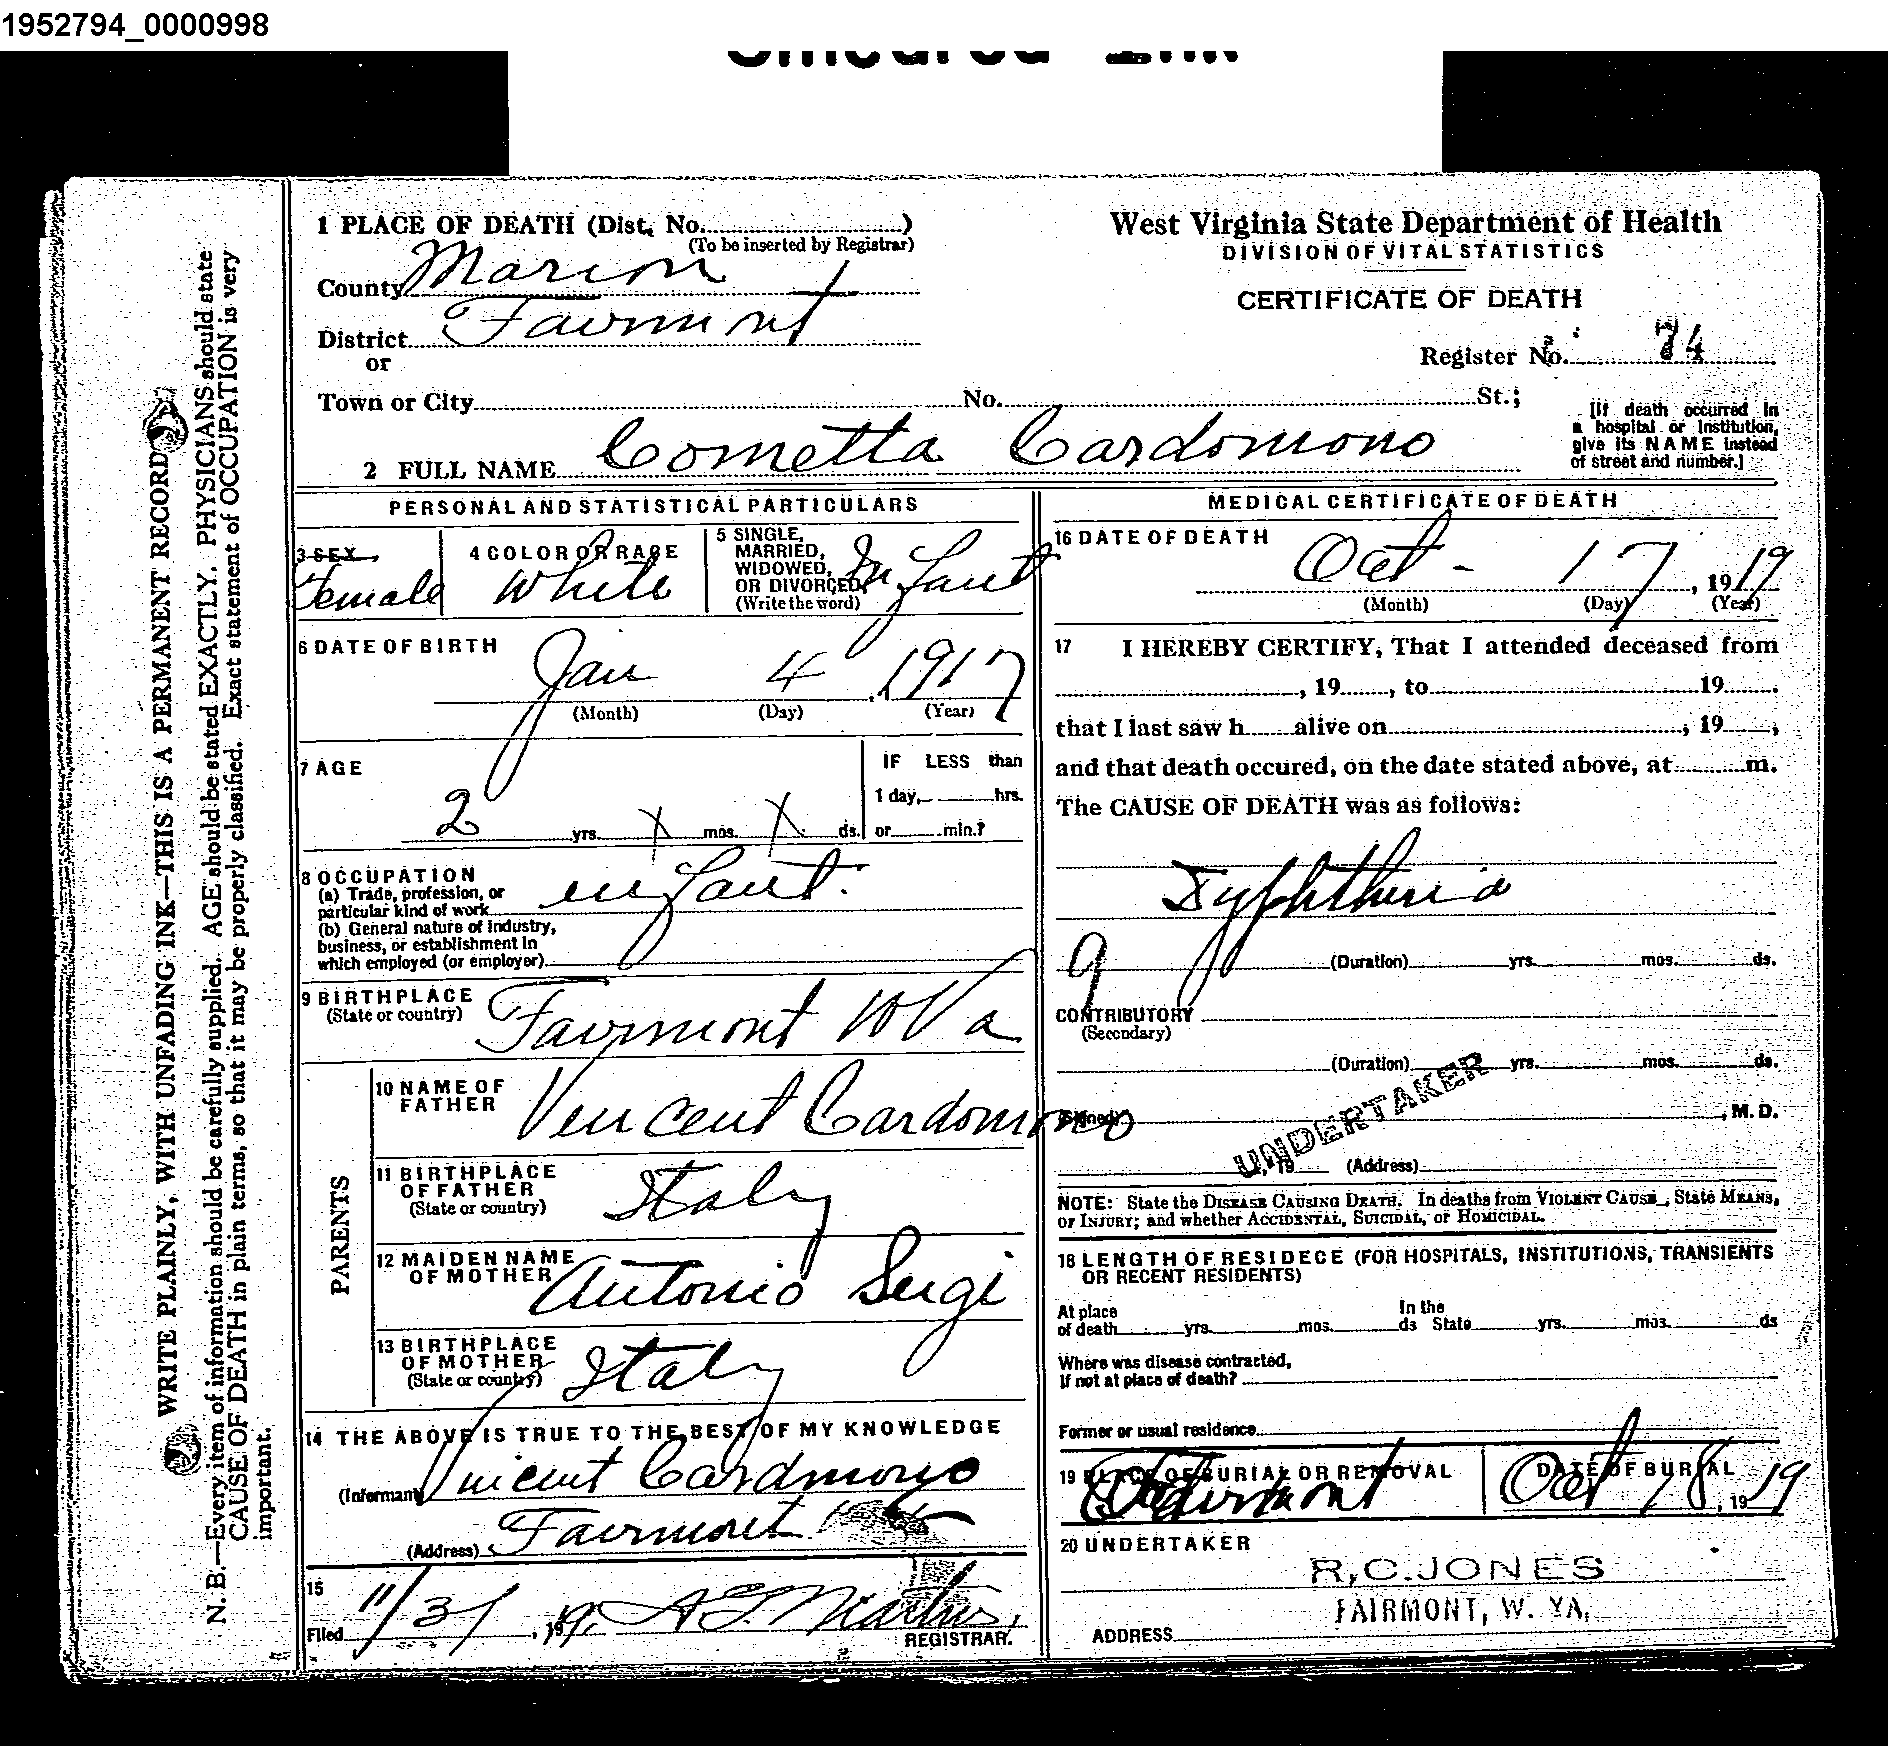 1952794_0000998
Smeared Ink
1 PLACE OF DEATH (Dist. No. )
(To be inserted by Registrar)
County Marion
District Fairmont
or
Town or City No. St.;
2 FULL NAME Cometta Cardomono
West Virginia State Department of Health
DIVISION OF VITAL STATISTICS
CERTIFICATE OF DEATH
Register No. 74
[If death occurred in
a hospital or institution,
give its NAME instead
of street and number.]
WRITE PLAINLY, WITH UNFADING INK—THIS IS A PERMANENT RECORD
N. B.—Every item of information should be carefully supplied. AGE should be stated EXACTLY. PHYSICIANS should state
CAUSE OF DEATH in plain terms, so that it may be properly classified. Exact statement of OCCUPATION is very
important.
PERSONAL AND STATISTICAL PARTICULARS
3 SEX
Female
4 COLOR OR RACE
White
5 SINGLE,
MARRIED,
WIDOWED,
OR DIVORCED
(Write the word)
Infant
6 DATE OF BIRTH
Jan 4, 1917
(Month) (Day) (Year)
7 AGE
2 yrs. X mos. X ds.
IF LESS than
1 day, hrs.
or min.?
8 OCCUPATION
(a) Trade, profession, or
particular kind of work
infant.
(b) General nature of industry,
business, or establishment in
which employed (or employer)
9 BIRTHPLACE
(State or country)
Fairmont W Va
PARENTS
10 NAME OF
FATHER
Vencent Cardomono
11 BIRTHPLACE
OF FATHER
(State or country)
Italy
12 MAIDEN NAME
OF MOTHER
Antonio Sergi
13 BIRTHPLACE
OF MOTHER
(State or country)
Italy
14 THE ABOVE IS TRUE TO THE BEST OF MY KNOWLEDGE
(Informant) Vincent Cardmono
(Address) Fairmont
15
Filed 11/31, 19
REGISTRAR.
MEDICAL CERTIFICATE OF DEATH
16 DATE OF DEATH
Oct - 17, 1919
(Month) (Day) (Year)
17 I HEREBY CERTIFY, That I attended deceased from
, 19 , to 19 .
that I last saw h alive on , 19 ,
and that death occured, on the date stated above, at m.
The CAUSE OF DEATH was as follows:
Dyphtheria
9 (Duration) yrs. mos. ds.
CONTRIBUTORY
(Secondary)
(Duration) yrs. mos. ds.
(Signed) , M. D.
UNDERTAKER
, 19 (Address)
NOTE: State the DISEASE CAUSING DEATH. In deaths from VIOLENT CAUSE, State MEANS,
or INJURY; and whether ACCIDENTAL, SUICIDAL, or HOMICIDAL.
18 LENGTH OF RESIDECE (FOR HOSPITALS, INSTITUTIONS, TRANSIENTS
OR RECENT RESIDENTS)
At place In the
of death yrs. mos. ds State yrs. mos. ds
Where was disease contracted,
If not at place of death?
Former or usual residence
19 PLACE OF BURIAL OR REMOVAL
Fairmont
DATE OF BURIAL
Oct 18, 1919
20 UNDERTAKER
R. C. JONES
FAIRMONT, W. VA.
ADDRESS